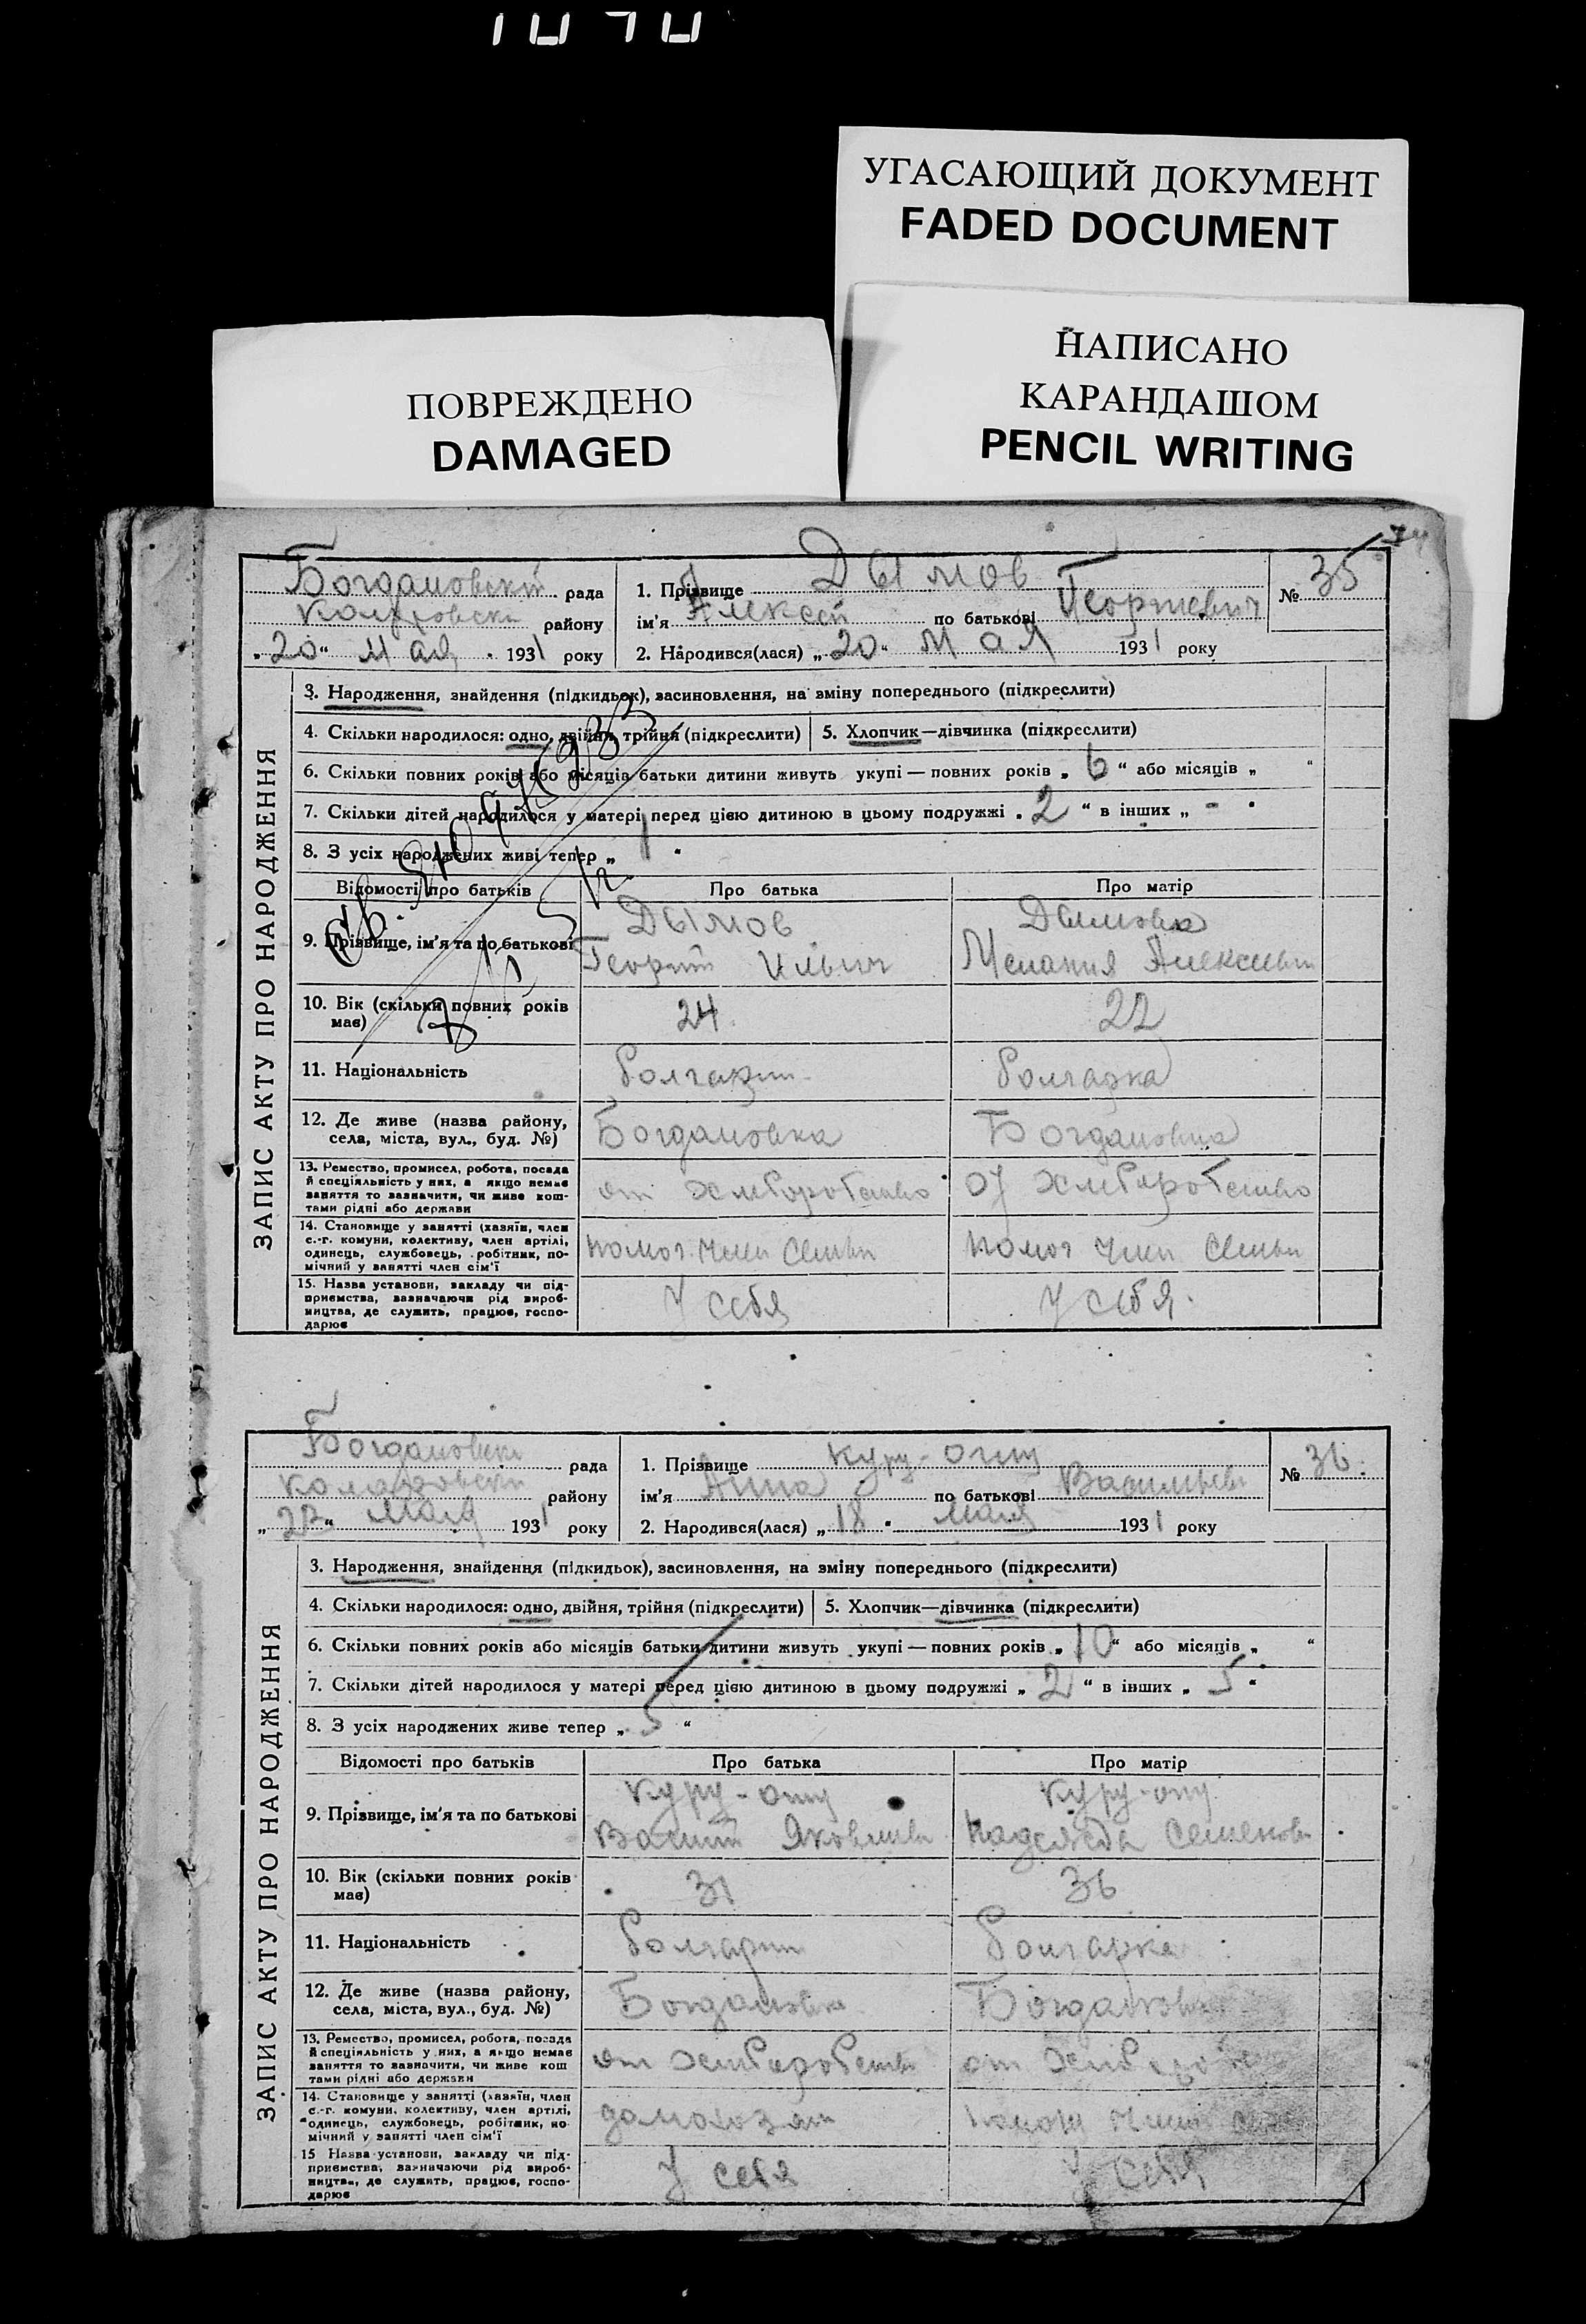 УГАСАЮЩИЙ ДОКУМЕНТ
FADED DOCUMENT
НАПИСАНО
КАРАНДАШОМ
PENCIL WRITING
ПОВРЕЖДЕНО
DAMAGED
ЗАПИС АКТУ ПРО НАРОДЖЕННЯ
Богдановский рада
району
„20“ мая 1931 року
1. Прізвище Дымов
ім'я Алексей по батькові Георгиевич
№ 35
2. Народився(лася) „20“ мая 1931 року
3. Народження, знайдення (підкидьок), засиновлення, на зміну попереднього (підкреслити)
4. Скільки народилося: одно, двійня, трійня (підкреслити) 5. Хлопчик—дівчинка (підкреслити)
6. Скільки повних років або місяців батьки дитини живуть укупі — повних років „6“ або місяців „ “
7. Скільки дітей народилося у матері перед цією дитиною в цьому подружжі „2“ в інших „-“
8. З усіх народжених живі тепер „1“
Відомості про батьків Про батька Про матір
9. Прізвище, ім'я та по батькові
Дымов Дымова
Георгий Ильич Мелания
10. Вік (скільки повних років має) 24 22
11. Національність болгарин болгарка
12. Де живе (назва району, села, міста, вул., буд. №) Богдановка Богдановка
13. Ремество, промисел, робота, посада
й спеціяльність у них, а якщо немає
заняття то зазначити, чи живе кош-
тами рідні або держави
от хлеборобство от хлеборобство
14. Становище у занятті (хазяїн, член
с.-г. комуни, колективу, член артілі,
одинець, службовець, робітник, по-
мічний у занятті член сім'ї
помог. член семьи помог член семьи
15. Назва установи, закладу чи під-
приємства, зазначаючи рід вироб-
ництва, де служить, працює, госпо-
дарює
У себя У себя
ЗАПИС АКТУ ПРО НАРОДЖЕННЯ
Богдановски рада
району
мая 1931 року
1. Прізвище Куру-
ім'я Анна по батькові
№ 36.
2. Народився(лася) „18“ мая 1931 року
3. Народження, знайдення (підкидьок), засиновлення, на зміну попереднього (підкреслити)
4. Скільки народилося: одно, двійня, трійня (підкреслити) 5. Хлопчик—дівчинка (підкреслити)
6. Скільки повних років або місяців батьки дитини живуть укупі — повних років „10“ або місяців „ “
7. Скільки дітей народилося у матері перед цією дитиною в цьому подружжі „2“ в інших „5“
8. З усіх народжених живе тепер „5“
Відомості про батьків Про батька Про матір
9. Прізвище, ім'я та по батькові
Куру- Куру-
Надежда Семенов
10. Вік (скільки повних років має) 31 36
11. Національність болгарин болгарка
12. Де живе (назва району, села, міста, вул., буд. №) Богдановка Богдановка
13. Ремество, промисел, робота, посада
й спеціяльність у них, а якщо немає
заняття то зазначити, чи живе кош
тами рідні або держави
от
14. Становище у занятті (хазяїн, член
с.-г. комуни, колективу, член артілі,
одинець, службовець, робітник, по-
мічний у занятті член сім'ї
15 Назва установи, закладу чи під-
приємства, зазначаючи рід вироб-
ництва, де служить, працює, госпо-
дарює
У себя У себя